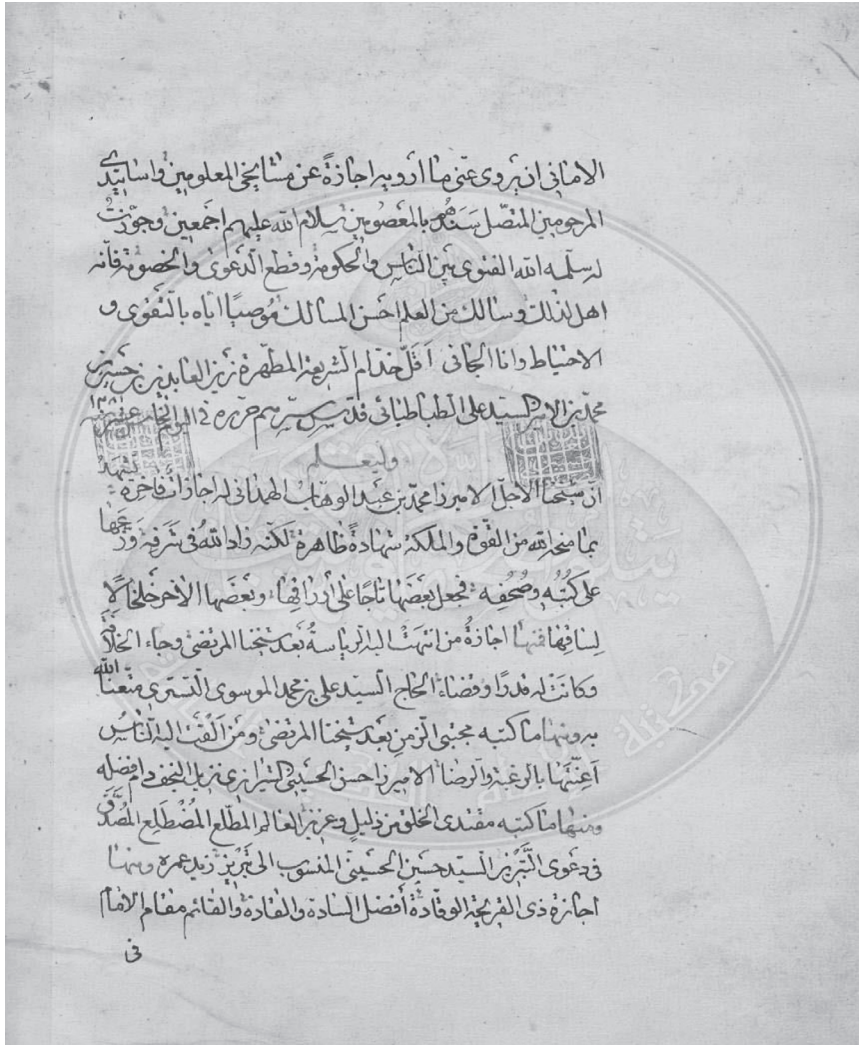 الاماني ان يروي عني ما أرويه اجازةً عن مشايخي المعلومين واسانيدي
المرحومين المتصل سندهم بالمعصومين سلام الله عليهم اجمعين وجوّزت
له سلّمه الله الفتوى بين الناس والحكومة وقطع الدعوى والخصومة فانّه
اهل لذلك وسالك من العلم احسن المسالك مُوصيًا ايّاه بالتقوى و
الاحتياط وانا الجاني اقلّ خدام الشريعة المطهرة زين العابدين بن حسين بن
محمد بن الامير السيد علي الطباطبائي قدّس سرّهم حرره في
وليعلم
أن شيخنا الاجلّ الاميرزا محمد بن عبد الوهاب الهمداني له اجازات فاخرة تشهد
بما منحه الله من القوة والملكة شهادةً ظاهرة لكنّه زاد الله في شرفه وزّعها
على كُتُبِه وصُحُفِه فجعل بعضها تاجًا على أوراقها وبعضها الآخر خلخالًا
لساقها فمنها اجازةُ من انتهت اليه الرياسةُ بعد شيخنا المرتضى وجاء الخلافة
وكانت له قدرًا وقضاء الحاج السيد علي بن محمد الموسوي التستري متّعنا الله
به ومنها ما كتبه مجتبى الزمن بعد شيخنا المرتضى ومن ألقت اليه الناس
أعنّتها بالرغبة والرضا الاميرزا حسن الحسيني الشيرازي نزيل النجف دام فضله
ومنها ما كتبه مقتدى الخلق من ذليل وعزيز العالم المطّلع المُضْطَلع المُصدَّق
في دعوى التبريز السيد حسين الحسيني المنسوب الى تبريز زيد عمره ومنها
اجازة ذي القريحة الوقّادة أفضل السادة والقادة والقائم مقام الامام
في